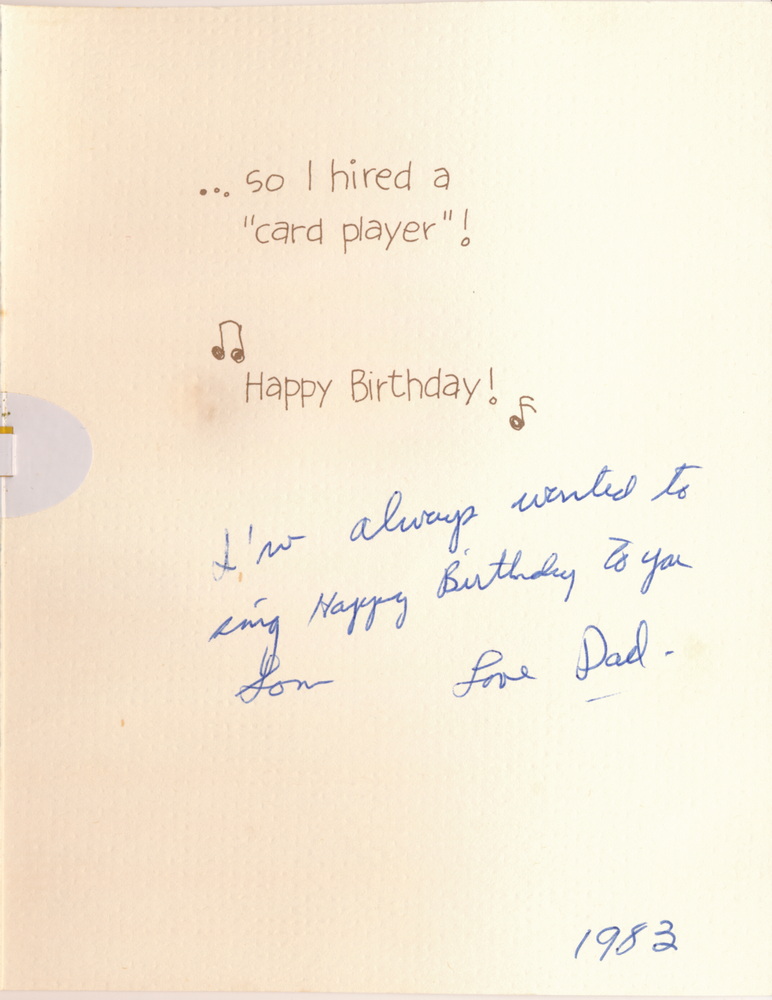 ... so I hired a
"card player"!
Happy Birthday!
I've always wanted to
sing Happy Birthday to you
Son Love Dad.
1983